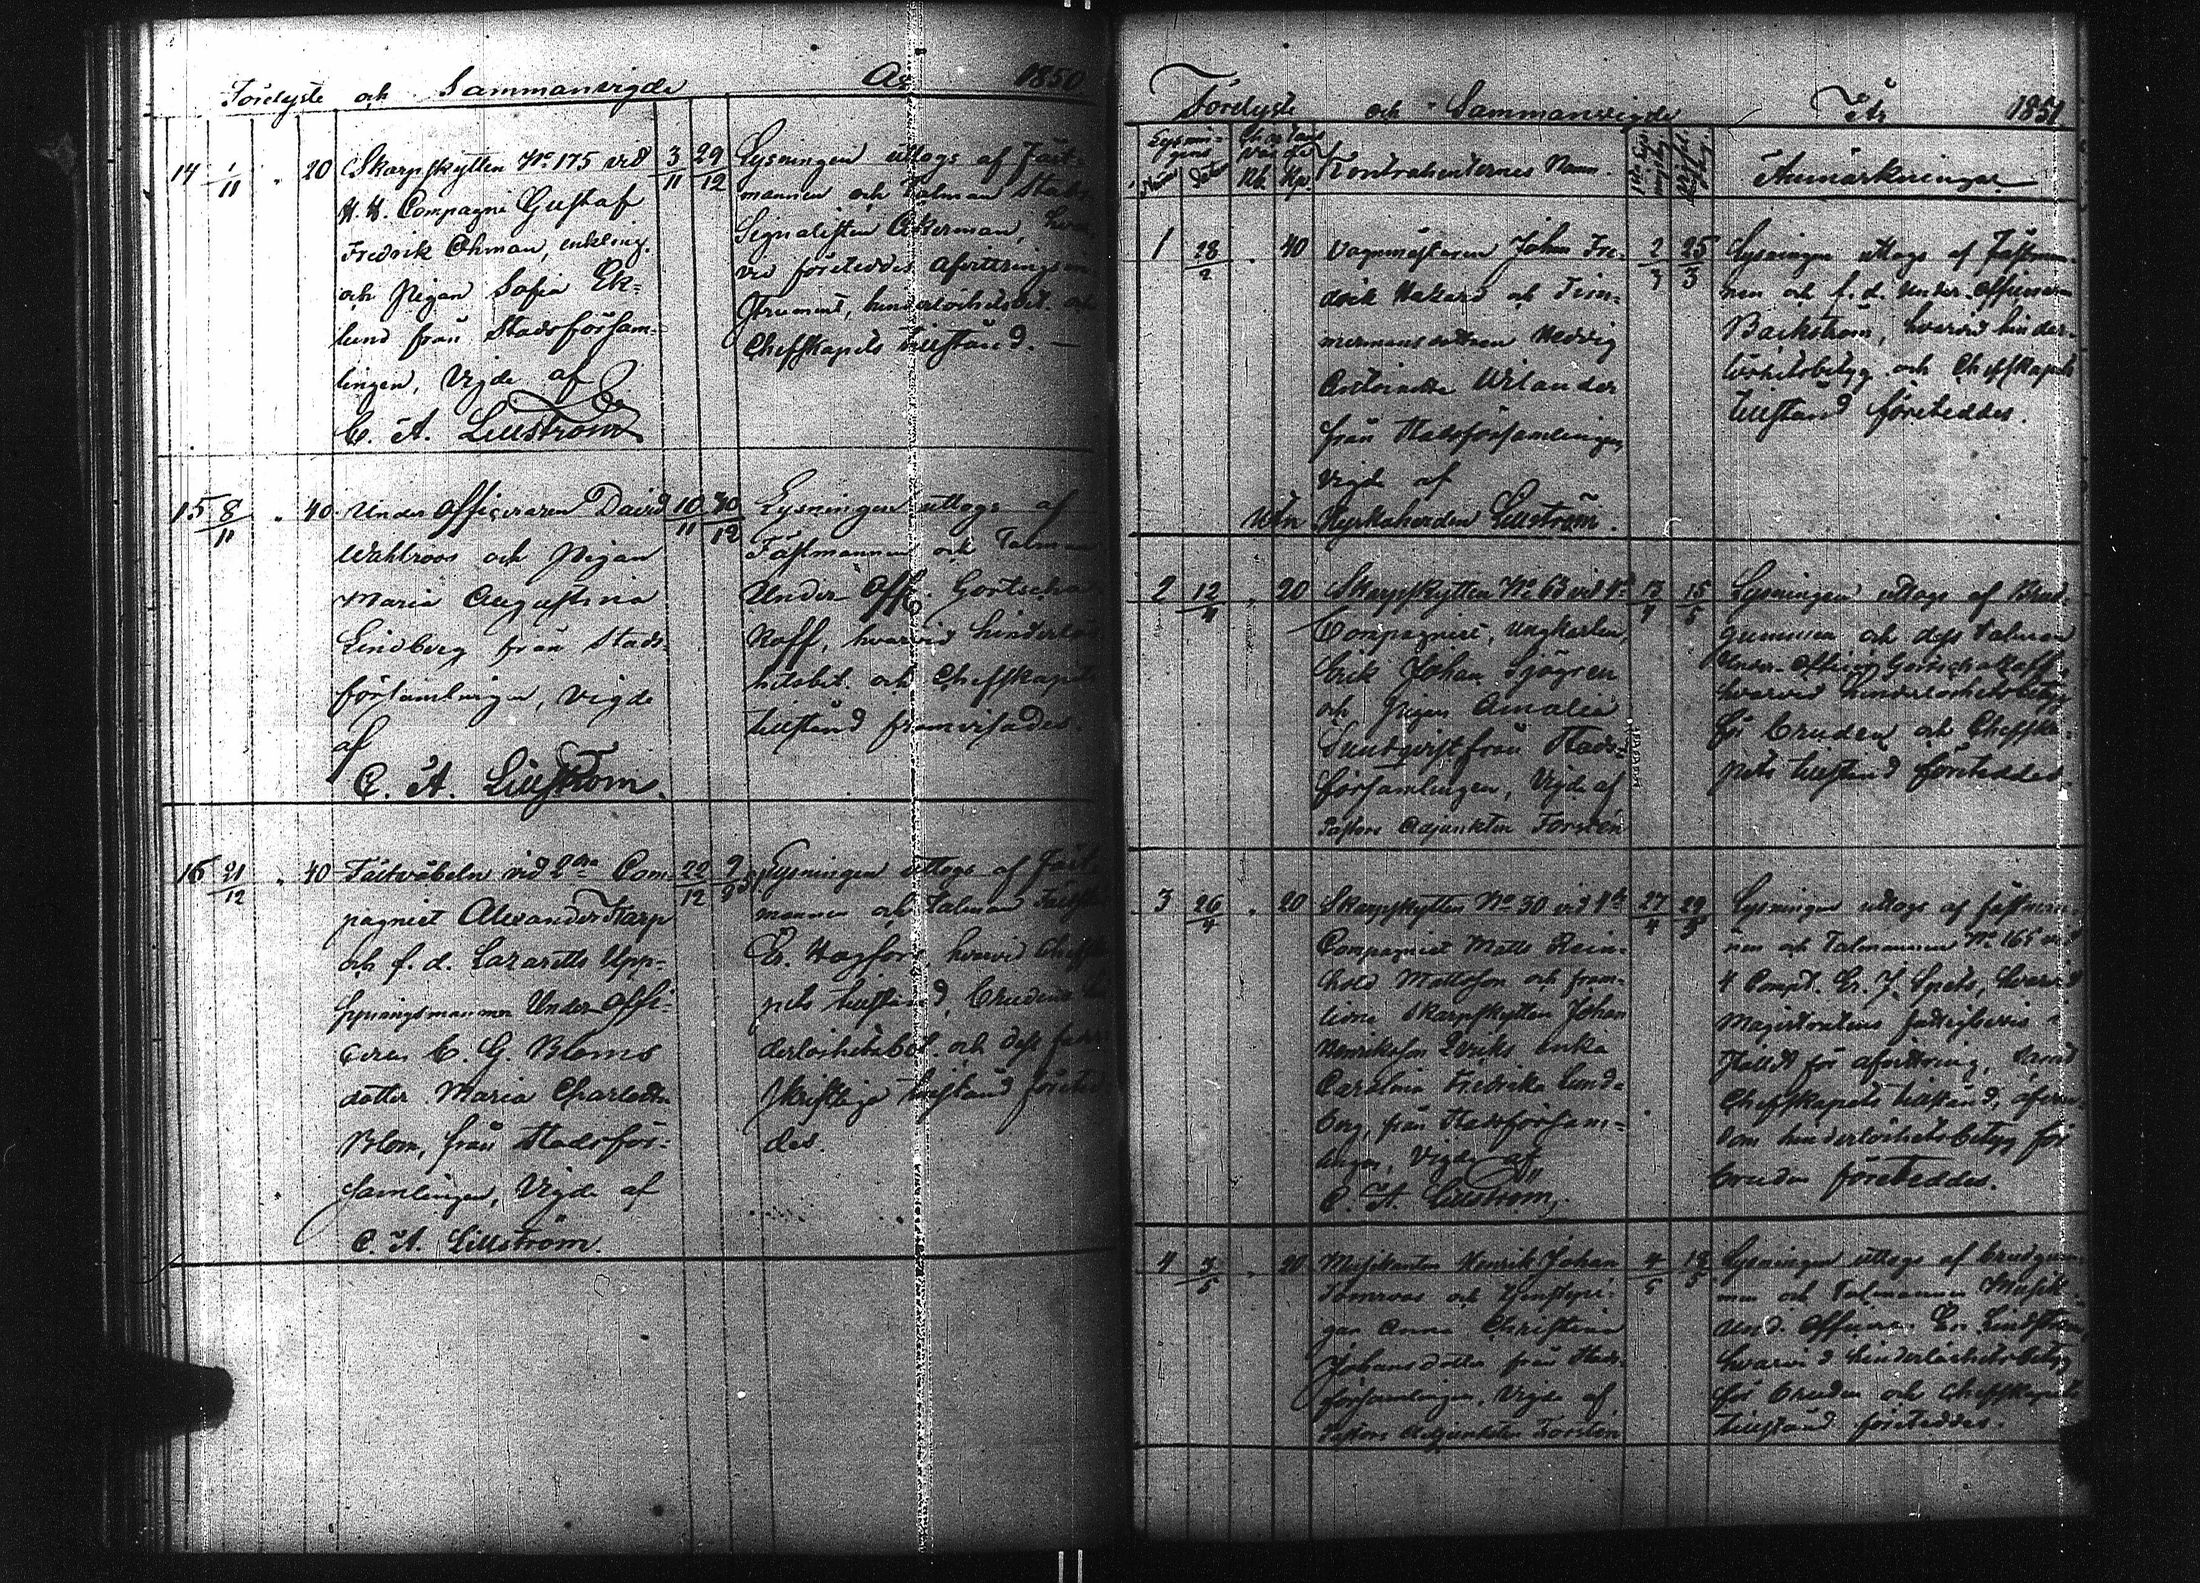 Förelyste och Sammanvigde År 1850
14 1/11 " 20 Skarpskytten No 175 vid 3/11 29/12
Compagni Gustaf
Fredrik Öhman, enkling,
och Pigan Sofia Ek-
lund från Stadsförsam-
lingen, Vigde af
C. A. Lillström
Lysningen uttogs af Fäst-
mannen och Talman Stabs
Signalisten Åkerman,
vid företeddes
hinderlöshetsbet. och
Chefskapets tillstånd. —
15 8/11 " 40 Under Officeraren David 10/11 30/12
Wahlroos och Pigan
Maria Augustina
Lindberg från Stads-
församlingen, Vigde
af
C. A. Lillström.
Lysningen uttogs af
Fästmannen och Talman
Under Off. Gortscha-
koff, hvarvid hinderlös-
hetsbet. och Chefskapets
tillstånd framvisades.
16 21/12 " 40 Fältväbeln vid 2dra Com- 22/12
pagniet Alexander Starp
och f. d. Lazaretts Upp-
syningsmannen Under Offi-
ceren C. G. Bloms
dotter Maria Charlotta
Blom, från Stadsför-
samlingen, Vigde af
C. A. Lillström.
Lysningen uttogs af Fäst-
mannen och Talman
E. Hagfors, hvarvid Chefska-
pets tillstånd, Brudens hin-
derlöshetsbet. och dess
skriftliga tillstånd företed-
des.
Förelyste och Sammanvigde År 1851
Kontrahenternes Namn.
Anmärkningar
1 28/2 " 40 Vagnmästaren Johan Fre- 2/3 25/3
drik och Tim-
mermansdottren Hedvig
Wilander
från Stadsförsamlingen,
Vigde af
Kyrkoherden Lillström.
Lysningen uttogs af Fästman-
nen och f. d. Under-officeren
Backström, hvarvid hinder-
löshetsbetyg och Chefskapets
tillstånd företeddes.
2 12/4 " 20 Skarpskytten No 63 vid 1sta 13/4 15/5
Compagniet, ungkarlen,
Erik Johan Sjögren
och Pigan Amalia
Sundqvist från Stads-
församlingen, Vigde af
Pastors Adjunkten Forstén
Lysningen uttogs af Brud-
gummen och dess Talman
Under-Officer Gortschakoff
hvarvid hinderlöshetsbetyg
för Bruden och Chefska-
pets tillstånd företeddes
3 26/4 " 20 Skarpskytten No 30 vid 1sta 27/4
Compagniet Matts Rein-
hold Mattsson och fram-
lidne Skarpskytten Johan
Henriksson enka
Carolina Fredrika Lund-
berg, från Stadsförsam-
lingen, Vigde af
C. A. Lillström,
Lysningen uttogs af fästman-
nen och Talmannen No 165 vid
4 Comp. hvarvid
Magistratens
för afvittring, samt
Chefskapets tillstånd, äfven-
som hinderlöshetsbetyg för
bruden företeddes.
4 3/5 " 20 Musikanten Henrik Johan 4/5 18/5
Tomroos och Tjenstepi-
gan Anna Christina
Johansdotter från Stads-
församlingen, Vigde af
Pastors Adjunkten Forstén
Lysningen uttogs af brudgum-
men och Talmannen Musik-
Und. Officeren Lindström,
hvarvid hinderlöshetsbetyg
för bruden och Chefskapets
tillstånd företeddes.